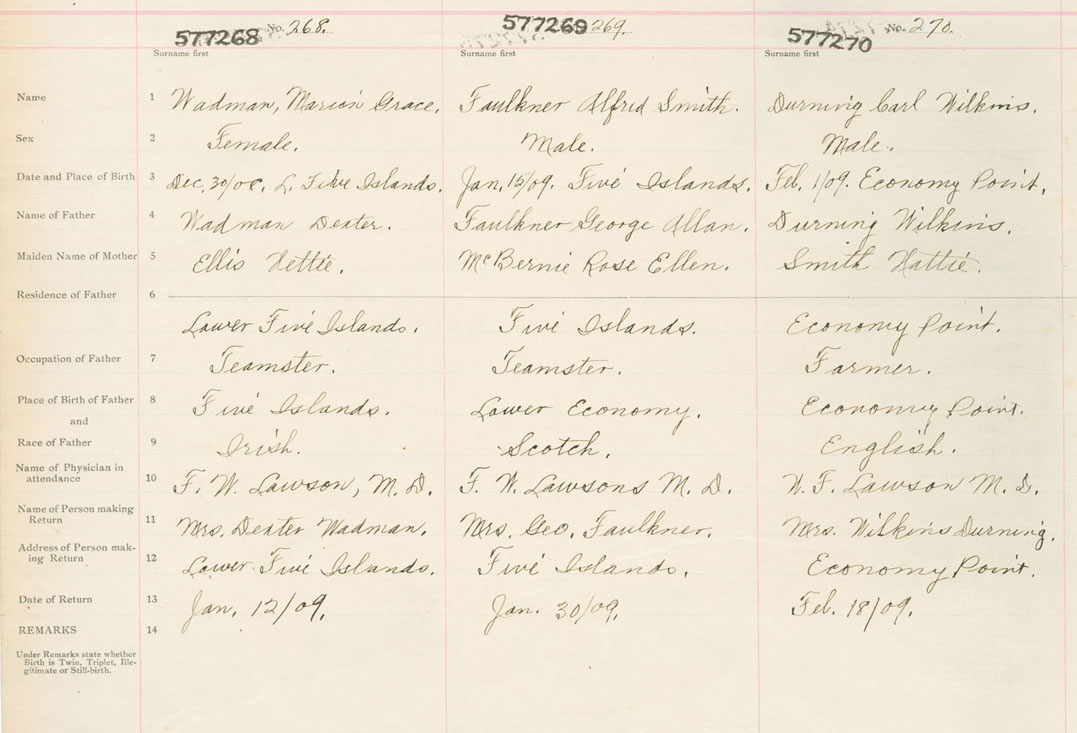 577268 No. 268. 577269 269. 577270 No. 270.
Surname first Surname first Surname first
Name 1 Wadman, Marion Grace. Faulkner Alfred Smith. Durning Carl Wilkins.
Sex 2 Female. Male. Male.
Date and Place of Birth 3 Dec. 30/08, L. Five Islands. Jan, 15/09. Five Islands. Feb. 1/09. Economy Point.
Name of Father 4 Wadman Dexter. Faulkner George Allan. Durning Wilkins.
Maiden Name of Mother 5 Ellis Hettie. McBernie Rose Ellen. Smith Hattie.
Residence of Father 6
Lower Five Islands. Five Islands. Economy Point.
Occupation of Father 7 Teamster. Teamster. Farmer.
Place of Birth of Father 8 Five Islands. Lower Economy. Economy Point.
and
Race of Father 9 Irish. Scotch. English.
Name of Physician in
attendance 10 F. W. Lawson, M. D. F. W. Lawsons M. D. W. F. Lawson M. D.
Name of Person making
Return 11 Mrs. Dexter Wadman. Mrs. Geo. Faulkner. Mrs. Wilkins Durning.
Address of Person mak-
ing Return 12 Lower Five Islands. Five Islands. Economy Point.
Date of Return 13 Jan, 12/09. Jan. 30/09. Feb. 18/09.
REMARKS 14
Under Remarks state whether
Birth is Twin, Triplet, Ille-
gitimate or Still-birth.